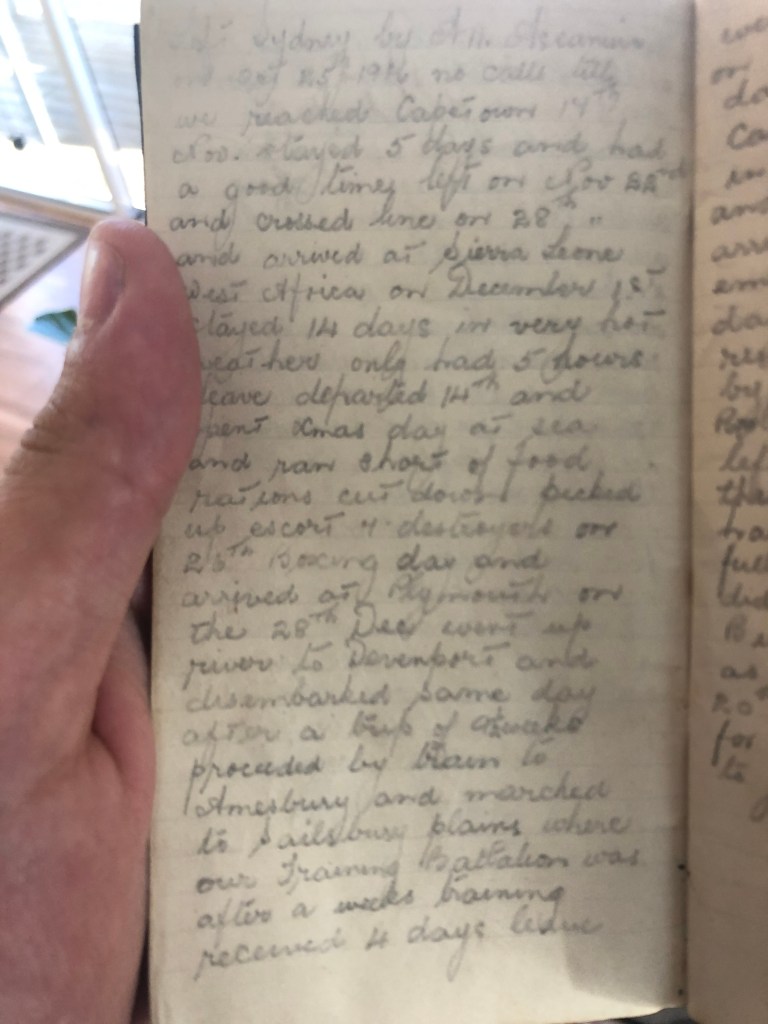 Left Sydney by S.S. Ascanius
on Oct 25th 1916 no calls till
we reached Capetown 14th
Nov. stayed 5 days and had
a good time, left on Nov 22nd
and crossed line on 28th "
and arrived at Sierra Leone
West Africa on December 1st
stayed 14 days in very hot
weather only had 5 hours
leave departed 14th and
spent Xmas day at sea
and ran short of food
rations cut down picked
up escort 4 destroyers on
Boxing day and
arrived at Plymouth on
the 28th Dec went up
river to Devenport and
disembarked same day
after a trip of 9½ weeks
proceeded by train to
Amesbury and marched
to Sailsbury plains where
our Training Battalion was
after a weeks training
received 4 days leave
we
or
da
Ca
in
and
arr
em
da
res
by
lef
tha
full
did
as
for
to